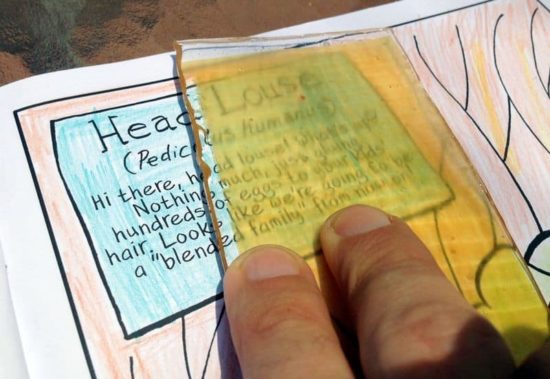 Head Louse
(Pediculus Humanus)
Hi there, head louse! What's up?
Nothing much, just laying
hundreds of eggs to your
hair. Looks like we're going to be
a "blended family" from now on!